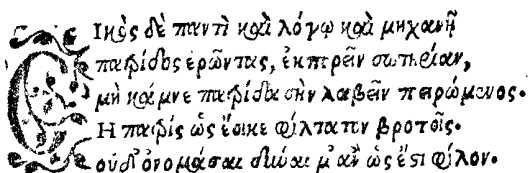 ΕΙκὸς δὲ παντὶ καὶ λόγῳ καὶ μηχανῇ
πατρίδος ἐρῶντας, ἐκπορεῖν σωτηρίαν,
μὴ κάμνε πατρίδα σὴν λαβεῖν πειρώμενος.
Η πατρίς ὡς ἔοικε φίλτατον βροτοῖς.
οὐδ' ὀνομάσαι δυναίμ' ἂν ὡς ἔστι φίλον.